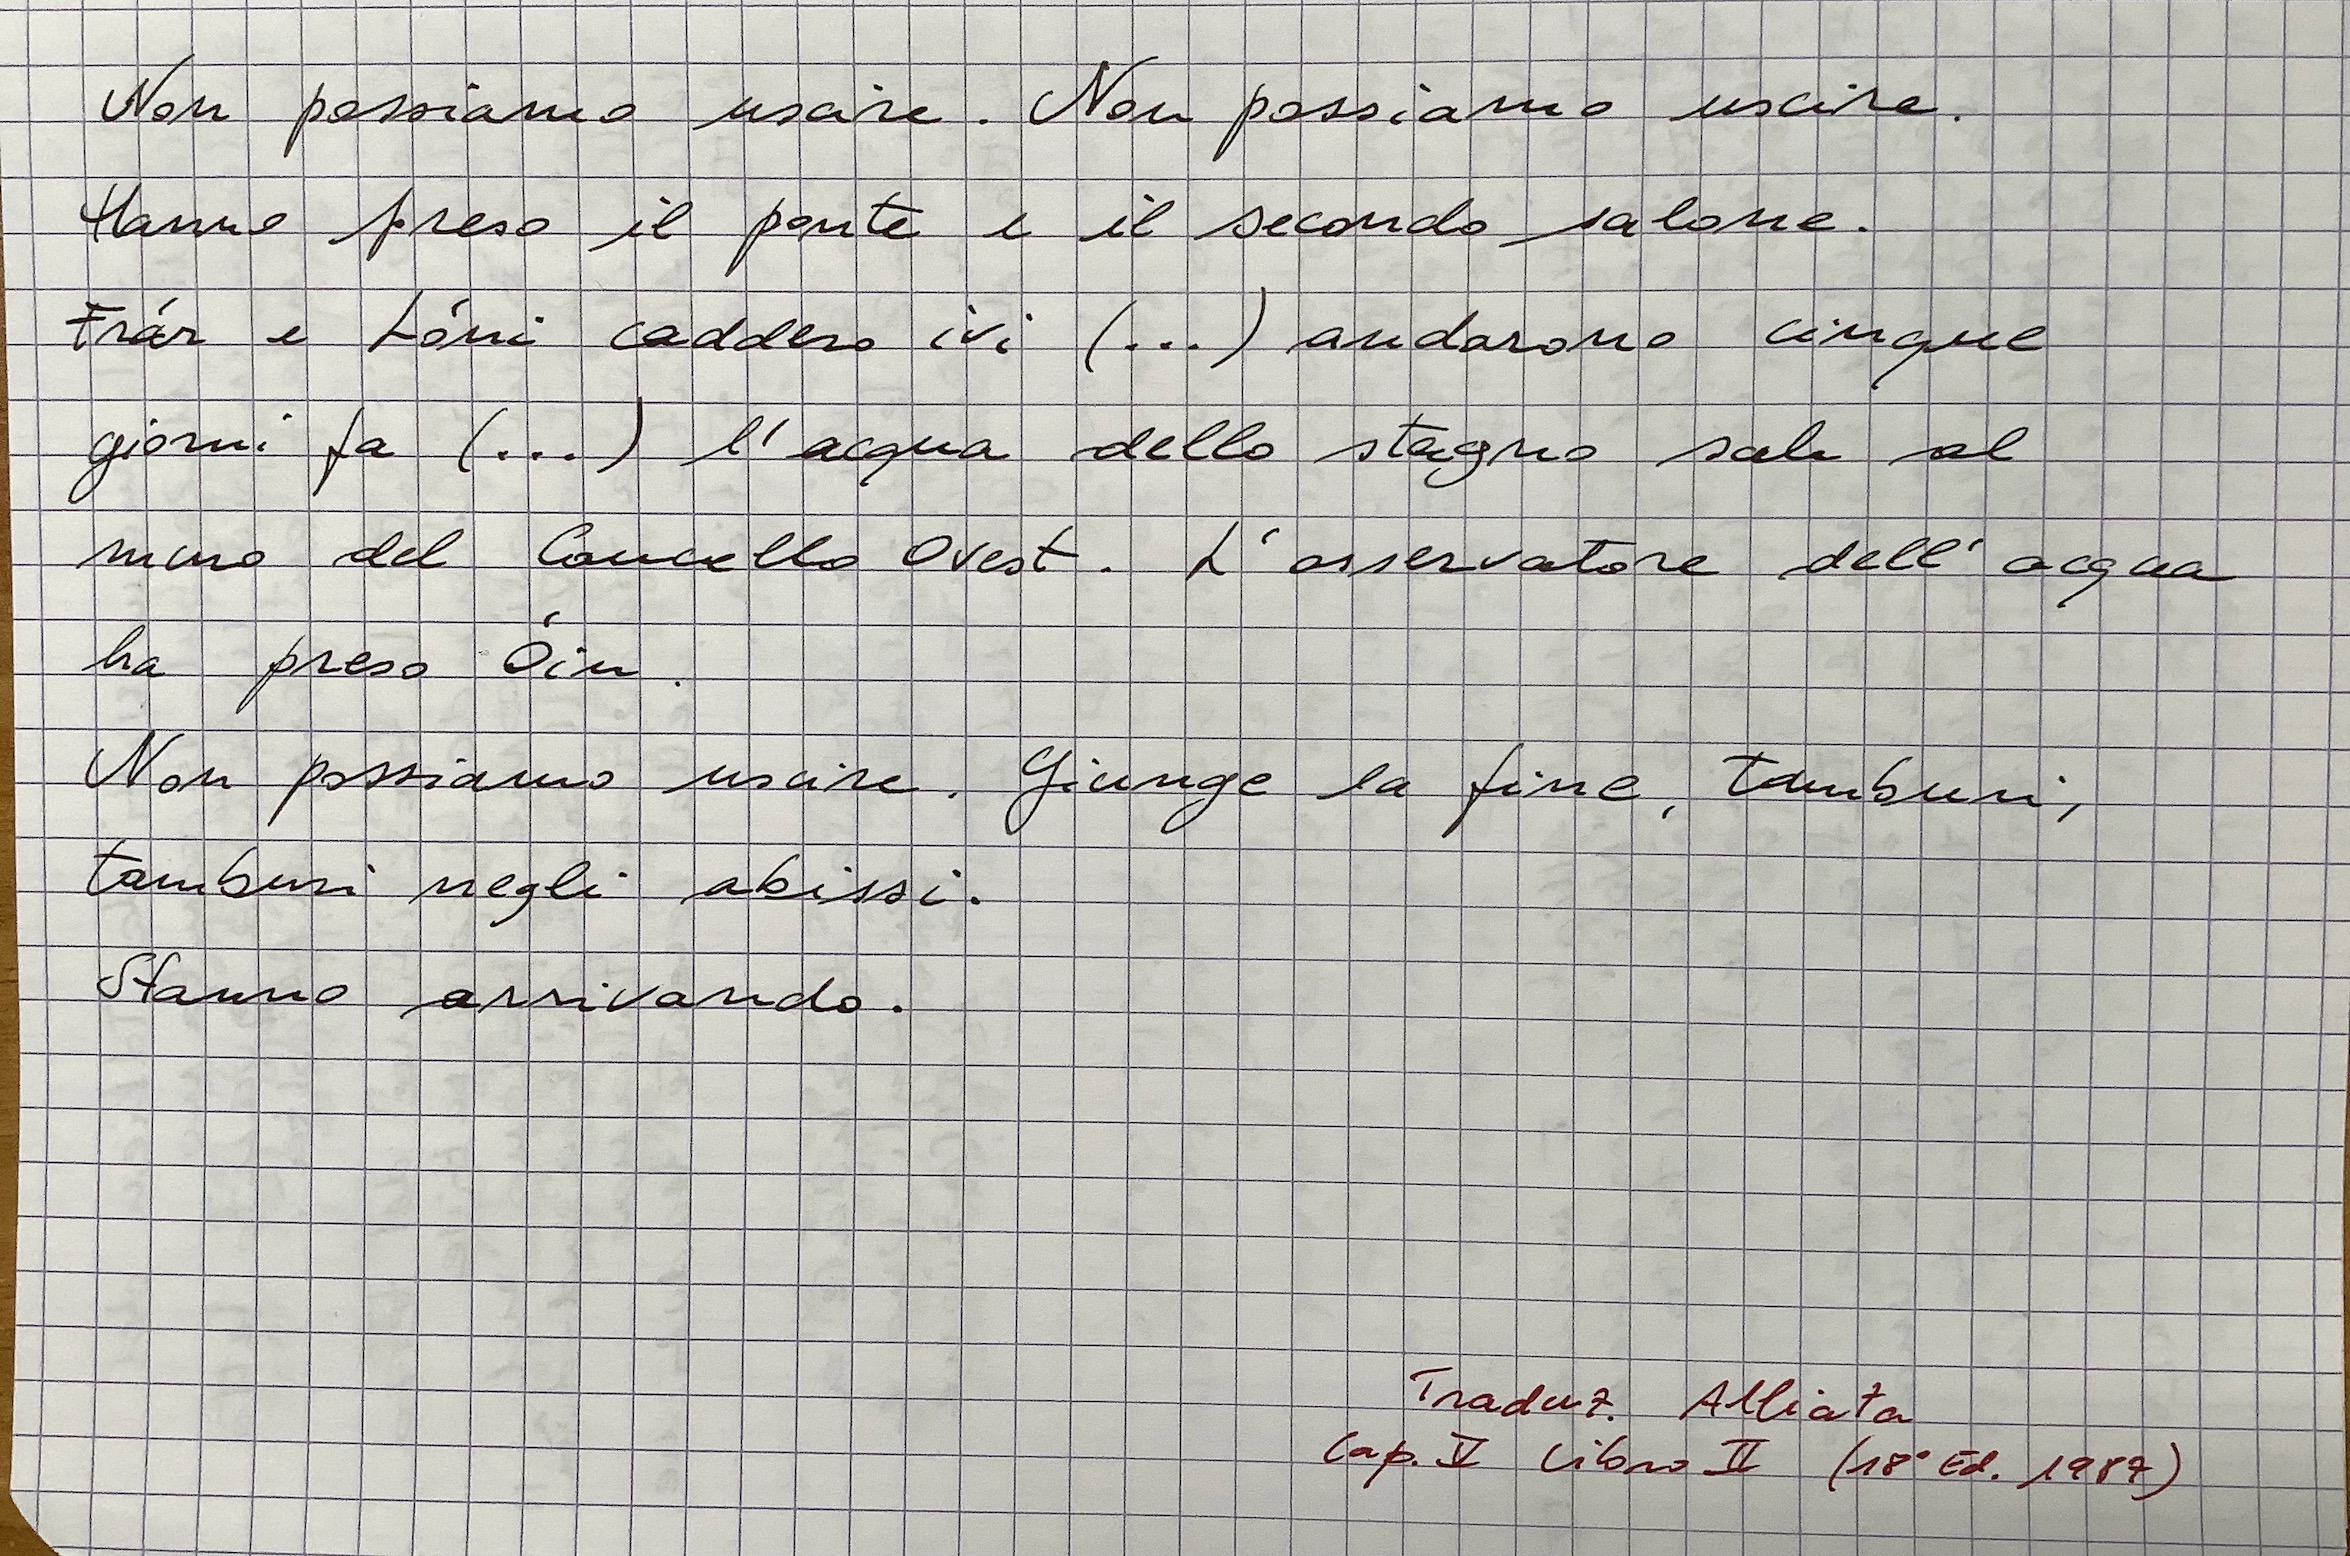 Non possiamo uscire. Non possiamo uscire.
Hanno preso il ponte e il secondo salone.
Frár e Lóni caddero ivi (...) andarono cinque
giorni fa (...) l'acqua dello stagno sale al
muro del Cancello Ovest. L'osservatore dell'acqua
ha preso Óin.
Non possiamo uscire. Giunge la fine, tamburi,
tamburi negli abissi.
Stanno arrivando.
Traduz. Alliata
Cap. V Libro II (18° Ed. 1987)